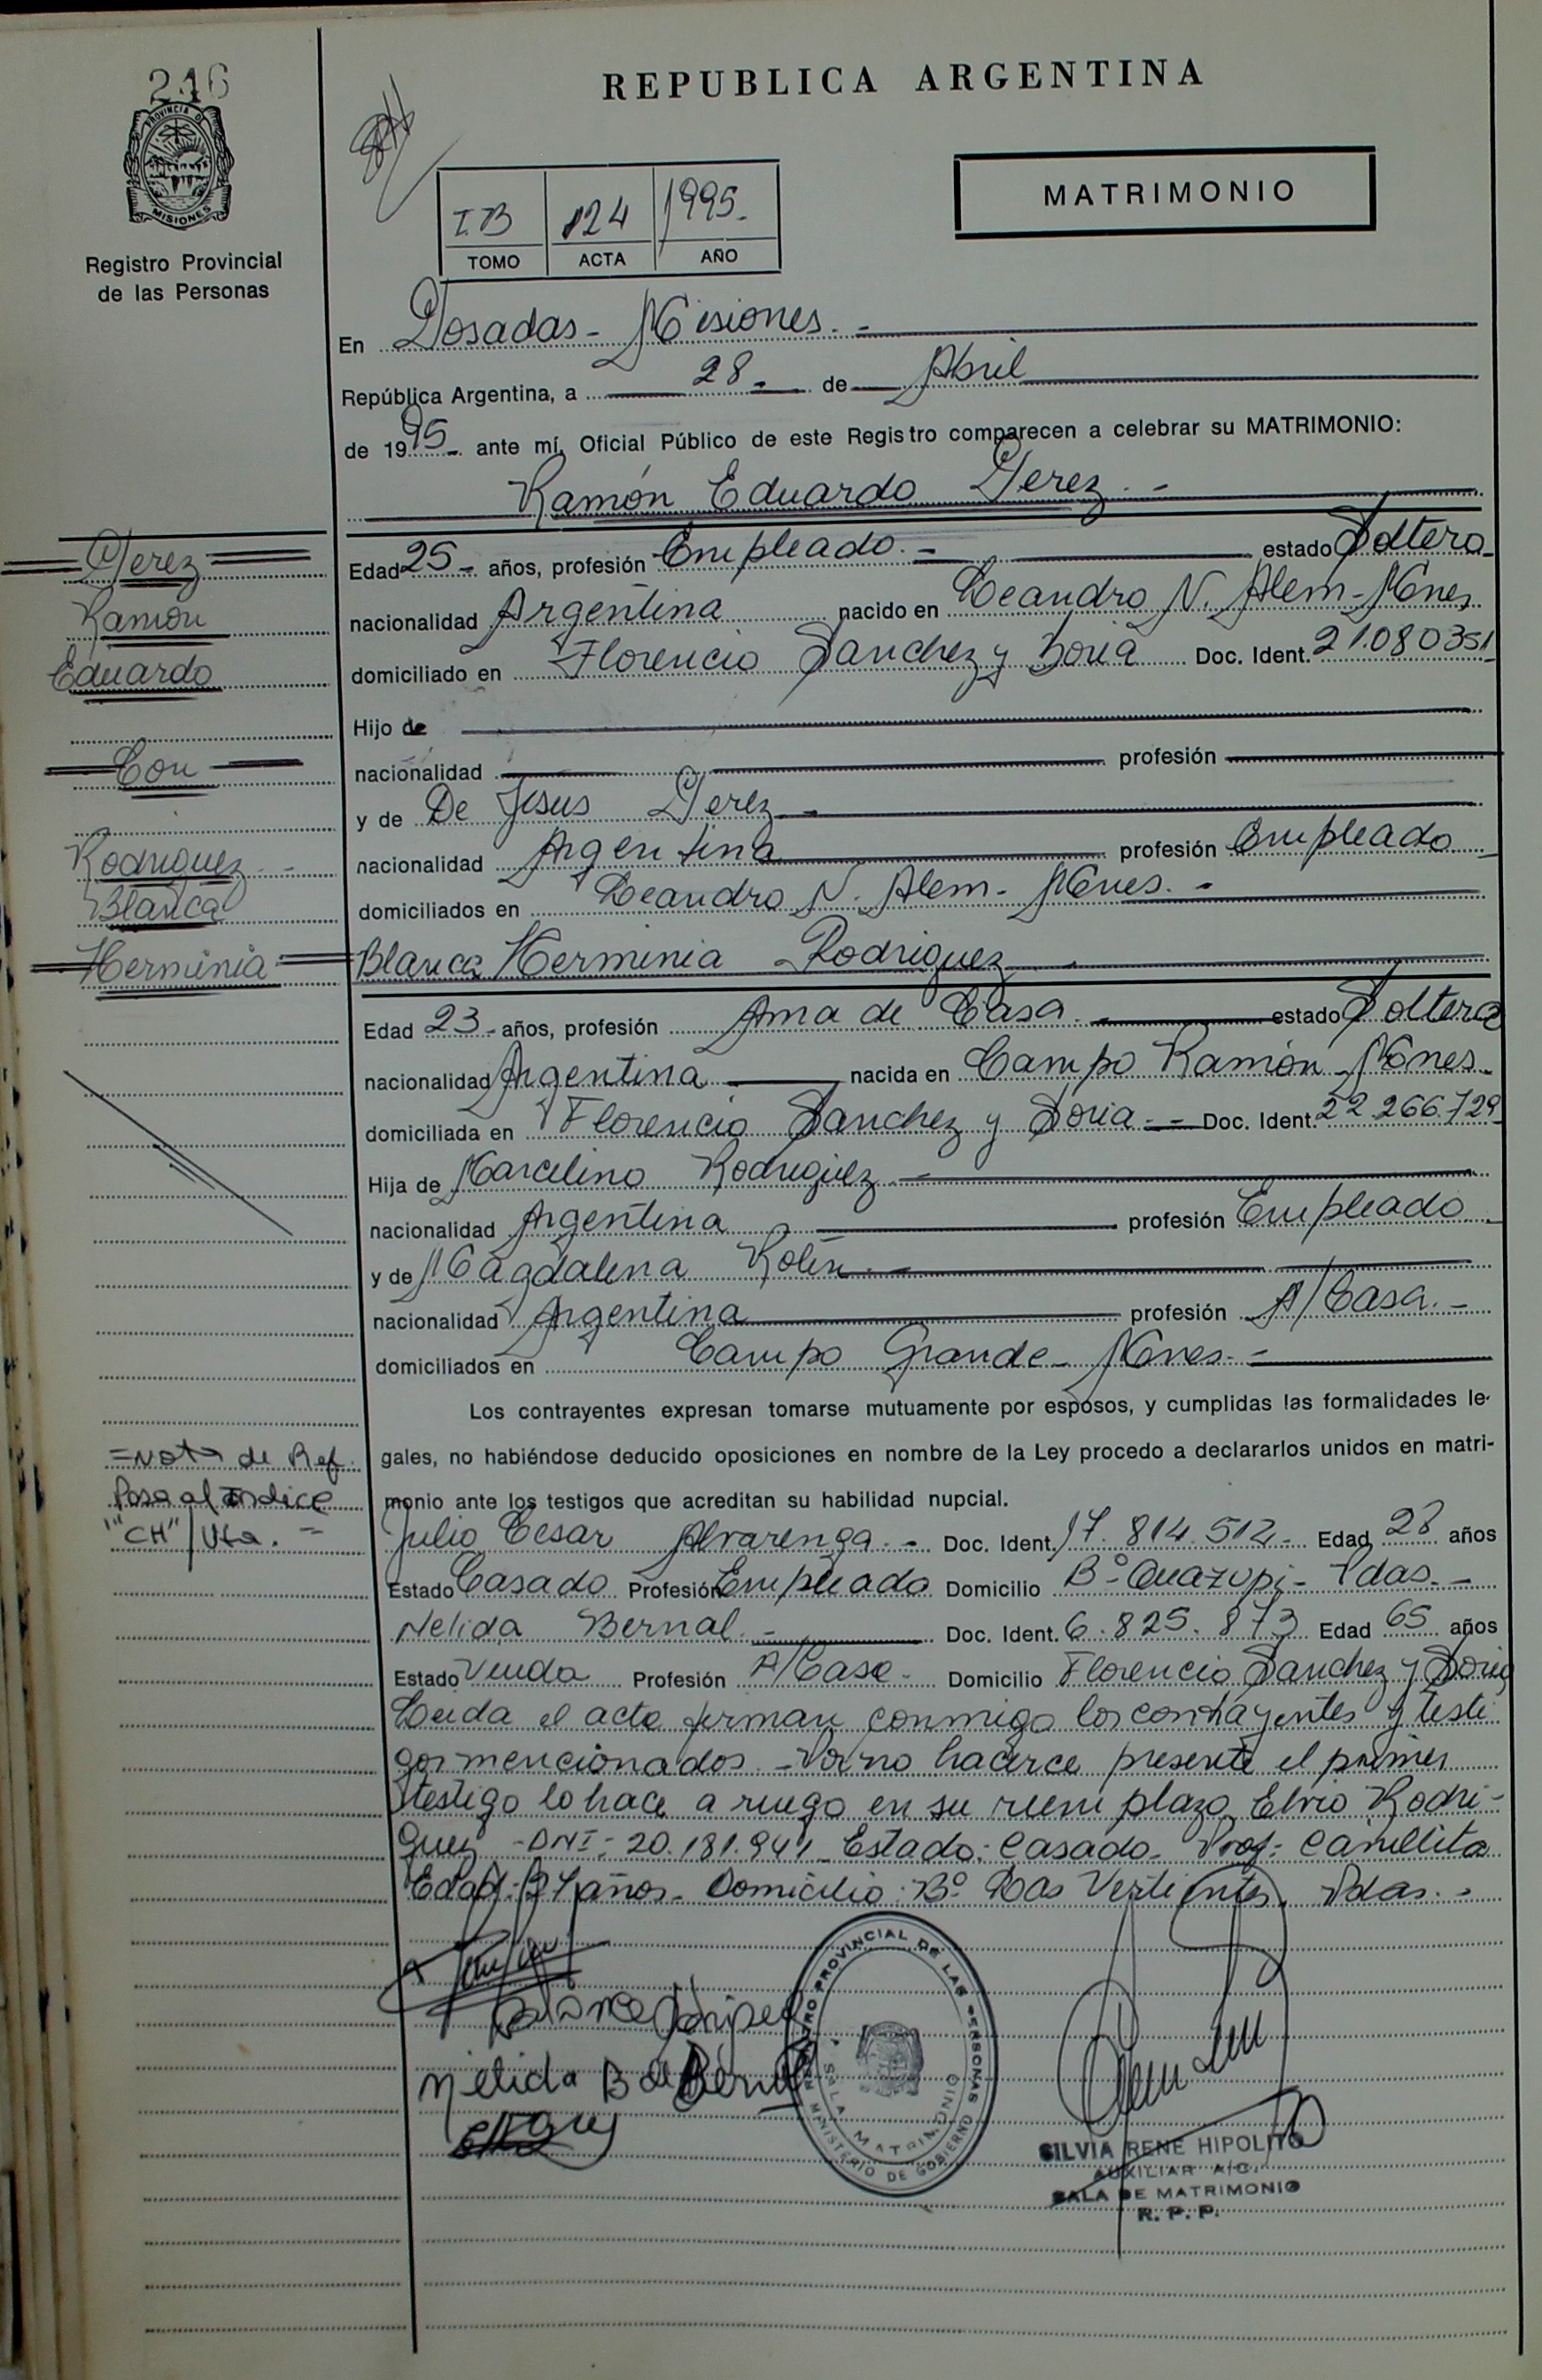 246
PROVINCIA DE
MISIONES
Registro Provincial
de las Personas
REPUBLICA ARGENTINA
MATRIMONIO
124 1995.-
TOMO ACTA AÑO
En Posadas - Misiones.-
República Argentina, a 28.- de Abril
de 1995- ante mí, Oficial Público de este Registro comparecen a celebrar su MATRIMONIO:
Ramón Eduardo Perez.-
Perez
Ramón
Eduardo
Con
Rodriguez.-
Blanca
Herminia
Edad 25- años, profesión Empleado.- estado Soltero
nacionalidad Argentina nacido en Leandro N. Alem-Mnes
domiciliado en Florencio Sanchez y Soria Doc. Ident. 21.080351
Hijo de
nacionalidad profesión
y de De Jesus Perez
nacionalidad Argentina profesión Empleado
domiciliados en Leandro N. Alem- Mnes.-
Blanca Herminia Rodriguez
Edad 23- años, profesión Ama de Casa.- estado Soltera
nacionalidad Argentina nacida en Campo Ramón Mnes.
domiciliada en Florencio Sanchez y Soria.- Doc. Ident. 22.266.729
Hija de Marcelino Rodriguez
nacionalidad Argentina profesión Empleado
y de Magdalena Rolin.-
nacionalidad Argentina profesión A/Casa.-
domiciliados en Campo Grande- Mnes.-
Los contrayentes expresan tomarse mutuamente por esposos, y cumplidas las formalidades le-
gales, no habiéndose deducido oposiciones en nombre de la Ley procedo a declararlos unidos en matri-
monio ante los testigos que acreditan su habilidad nupcial.
=Nota de Ref.
Pasa al Indice
"CH"/Vta.=
Julio Cesar Alvarenga.- Doc. Ident. 17.814.512- Edad 28 años
Estado Casado Profesión Empleado Domicilio B° Guazupi- Pdas.-
Nelida Bernal.- Doc. Ident. 6.825.873 Edad 65 años
Estado Viuda Profesión A/Casa- Domicilio Florencio Sanchez y Soria
Leida el acta firman conmigo los contrayentes y testi
gos mencionados.- Por no hacerce presente el primer
testigo lo hace a ruego en su reemplazo Elvio Rodri-
guez -DNI: 20.181.941- Estado: Casado- Prof: Canillita
Edad: 27 años- Domicilio: B° Las Vertientes. Pdas.-
Nelida B de Bernal
REGISTRO PROVINCIAL DE LAS PERSONAS
MINISTERIO DE GOBIERNO
SALA MATRIMONIO
SILVIA RENE HIPOLITO
AUXILIAR A/C.
SALA DE MATRIMONIO
R. P. P.